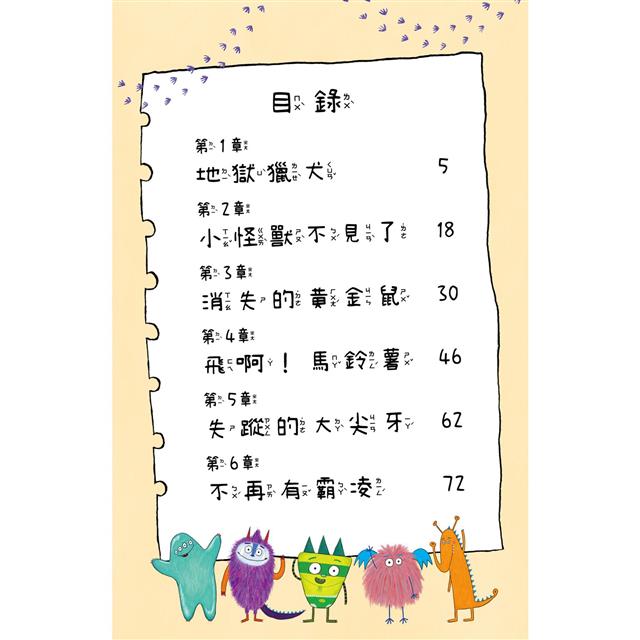 目錄
第1章
地獄獵犬 5
第2章
小怪獸不見了 18
第3章
消失的黃金鼠 30
第4章
飛啊！馬鈴薯 46
第5章
失蹤的大尖牙 62
第6章
不再有霸凌 72